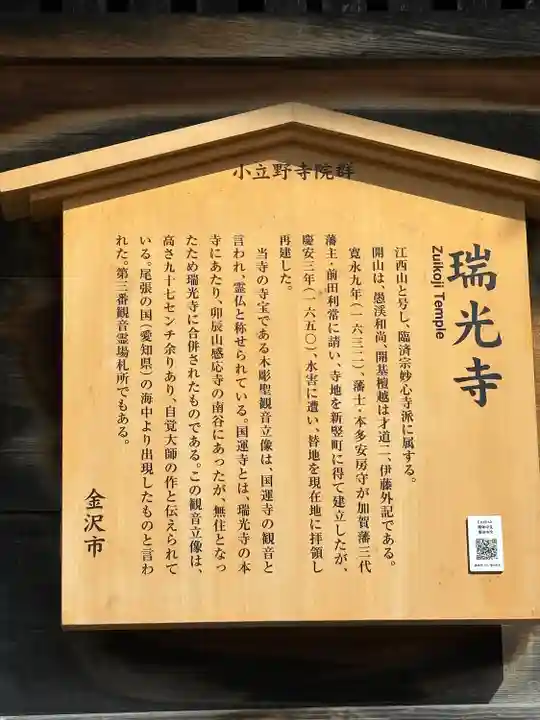 小立野寺院群
瑞光寺
Zuikoji Temple
江西山と号し、臨済宗妙心寺派に属する。
開山は、愚渓和尚、開基檀越は才道二、伊藤外記である。
寛永九年(一六三二)、藩士・本多安房守が加賀藩三代
藩主・前田利常に請い、寺地を新竪町に得て建立したが、
慶安三年(一六五〇)、水害に遭い、替地を現在地に拝領し
再建した。
当寺の寺宝である木彫聖観音立像は、国運寺の観音と
言われ、霊仏と称せられている。国運寺とは、瑞光寺の本
寺にあたり、卯辰山感応寺の南谷にあったが、無住となっ
たため瑞光寺に合併されたものである。この観音立像は、
高さ九十七センチ余りあり、自覚大師の作と伝えられて
いる。尾張の国(愛知県)の海中より出現したものと言わ
れた。第三番観音霊場札所でもある。
金沢市